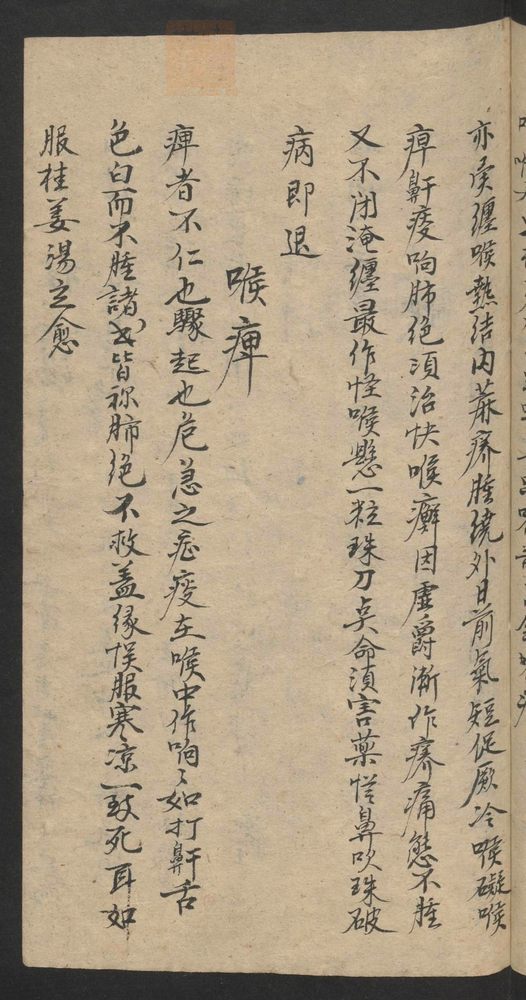 亦虜纏喉熱結内麻痒腫繞外日前氣短促厥冷喉礙喉
痺鼾痰响肺绝須治快喉癬因虛爵漸作痒痛態不腫
又不闭淹纏最作怪喉懸一粒珠刀矣命湏害藥惟鼻吹珠破
病即退
喉痺
痺者不仁也驟起也危急之症痰在喉中作响〻如打鼾舌
色白而不腫諸書皆称肺绝不救盖緣悮服寒凉一致死耳如
服桂姜湯立愈